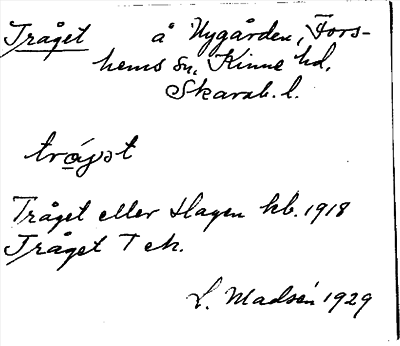 Tråget å Nygården, Fors-
hems sn, Kinne hd,
Skarab. l.
Tråget eller Hagen kb. 1918
Tråget T ek.
L. Madsén 1929